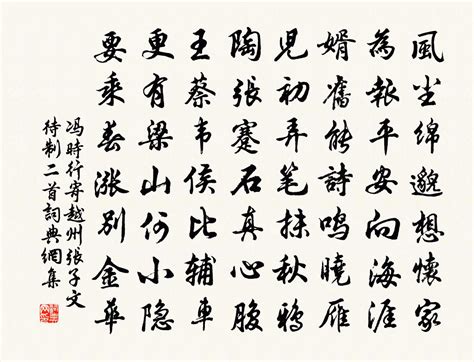 風尘綿邈想懷家
為報平安向海涯
婿舊能詩鳴曉雁
兒初弄笔抹秋鴉
陶張蹇石真心腹
王蔡韦侯比輔車
更有梁山何小隐
要乘春漲別金華
冯時行寄越州張子文
待制二首詞典網集